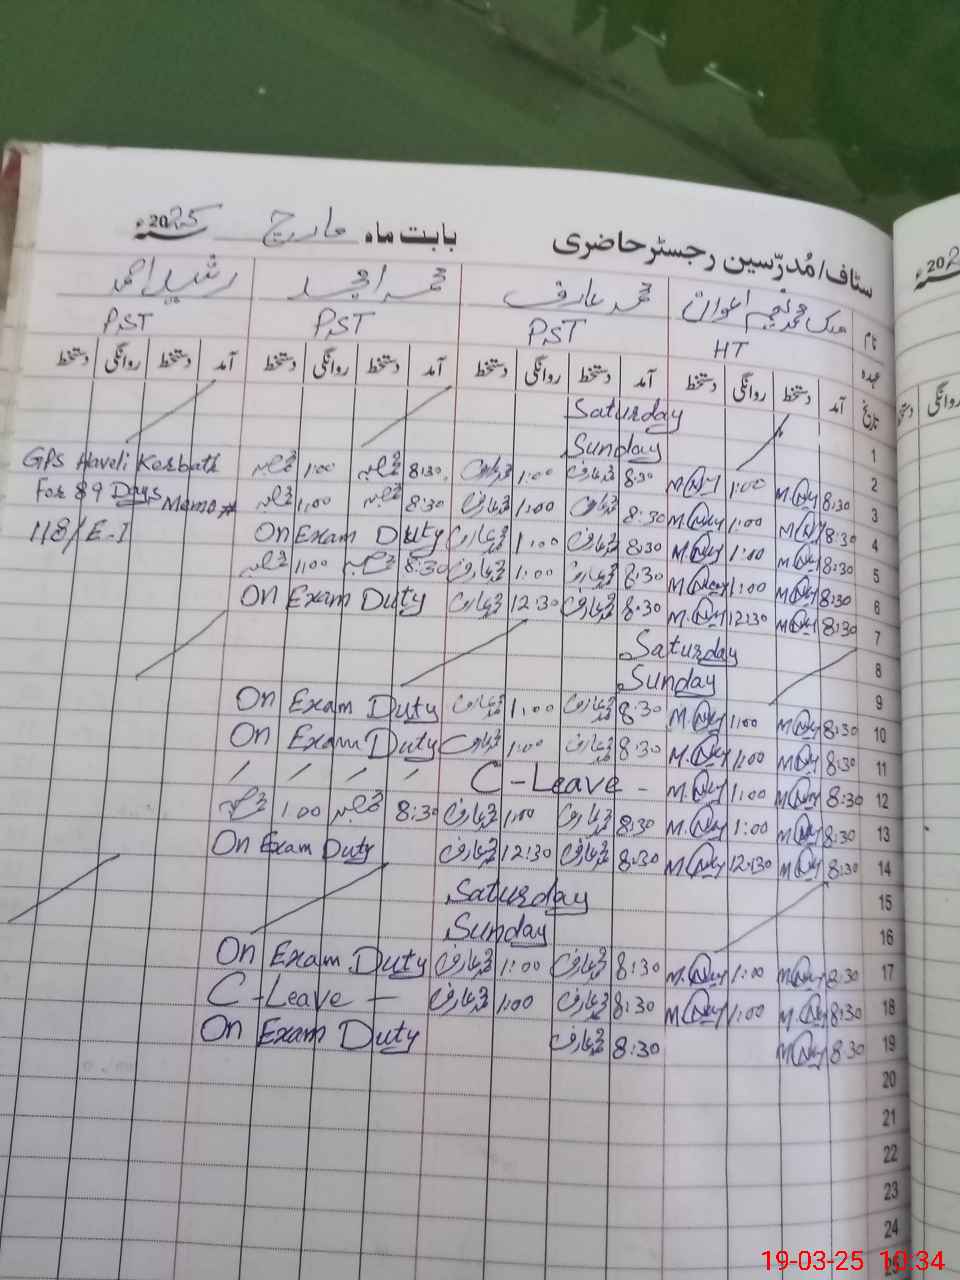 سٹاف/مُدرّسین رجسٹر حاضری بابت ماہ مارچ 2025ء
نام ملک محمد نعیم اعوان محمد عارف محمد امجد رشید احمد
عہدہ HT PST PST PST
تاریخ آمد دستخط روانگی دستخط آمد دستخط روانگی دستخط آمد دستخط روانگی دستخط آمد دستخط روانگی دستخط
1 Saturday
2 Sunday
3 8:30 1:00 8:30 محمد عارف 1:00 محمد عارف 8:30 1:00 GPS Haveli Korbath
4 8:30 1:00 8:30 محمد عارف 1:00 محمد عارف 8:30 1:00 For 89 Days Memo #
5 8:30 1:00 8:30 محمد عارف 1:00 محمد عارف On Exam Duty 118/E-I
6 8:30 1:00 8:30 محمد عارف 1:00 محمد عارف 8:30 1:00
7 8:30 12:30 8:30 محمد عارف 12:30 محمد عارف On Exam Duty
8 Saturday
9 Sunday
10 8:30 1:00 8:30 محمد عارف 1:00 محمد عارف On Exam Duty
11 8:30 1:00 8:30 محمد عارف 1:00 محمد عارف On Exam Duty
12 8:30 1:00 C-Leave - / / / /
13 8:30 1:00 8:30 محمد عارف 1:00 محمد عارف 8:30 1:00
14 8:30 12:30 8:30 محمد عارف 12:30 محمد عارف On Exam Duty
15 Saturday
16 Sunday
17 8:30 1:00 8:30 محمد عارف 1:00 محمد عارف On Exam Duty
18 8:30 1:00 8:30 محمد عارف 1:00 محمد عارف C-Leave -
19 8:30 8:30 محمد عارف On Exam Duty
20
21
22
23
24
25
19-03-25 10:34